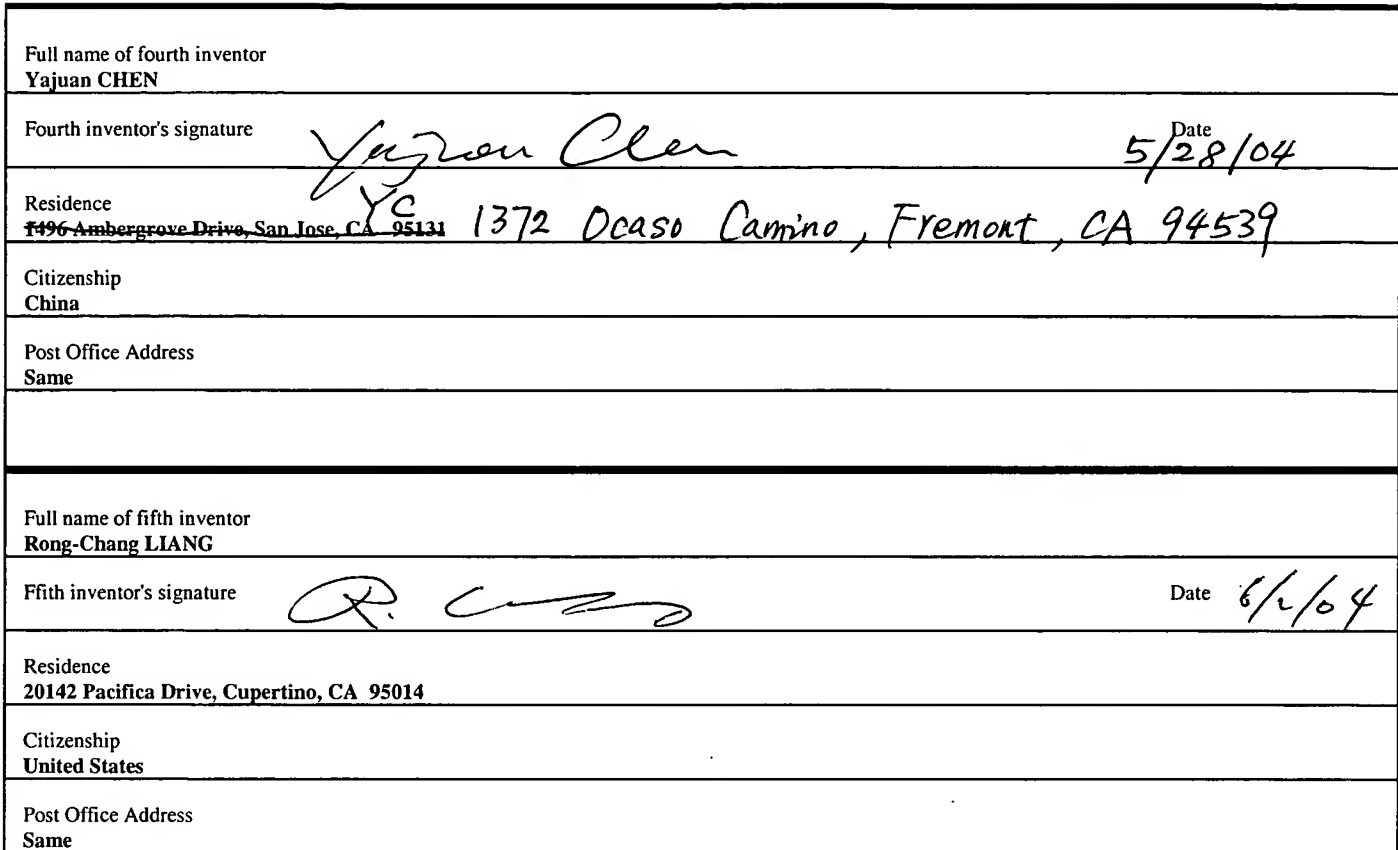 Full name of fourth inventor
Yajuan CHEN
Fourth inventor's signature Yajuan Chen Date 5/28/04
Residence
1496 Ambergrove Drive, San Jose, CA 95131 YC 1372 Ocaso Camino, Fremont, CA 94539
Citizenship
China
Post Office Address
Same
Full name of fifth inventor
Rong-Chang LIANG
Ffith inventor's signature R. Date 6/2/04
Residence
20142 Pacifica Drive, Cupertino, CA 95014
Citizenship
United States
Post Office Address
Same